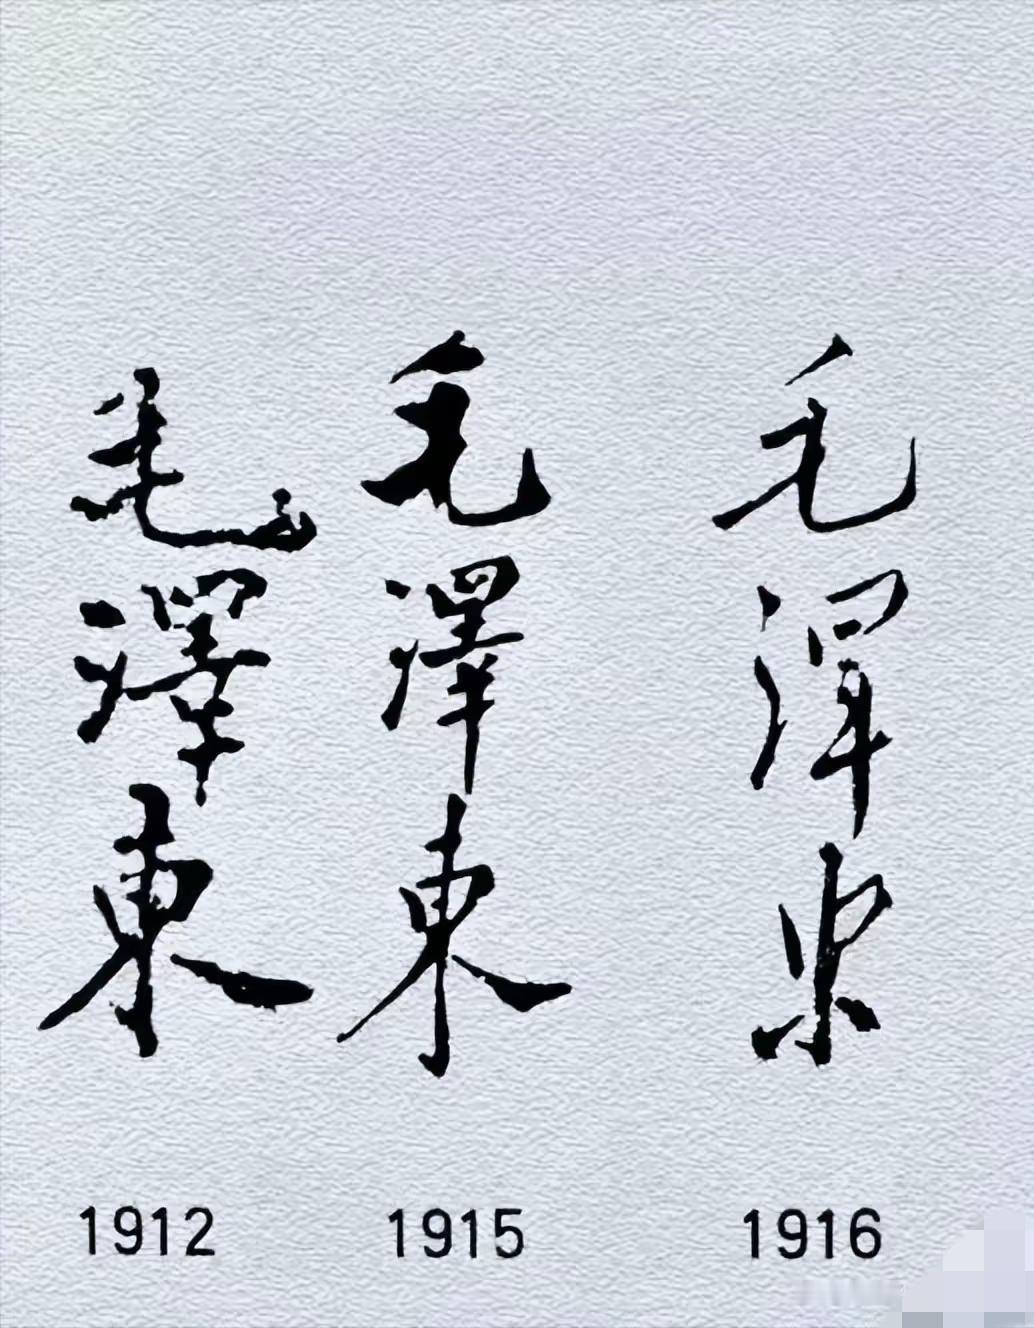 毛澤東
毛澤東
毛澤東
1912
1915
1916